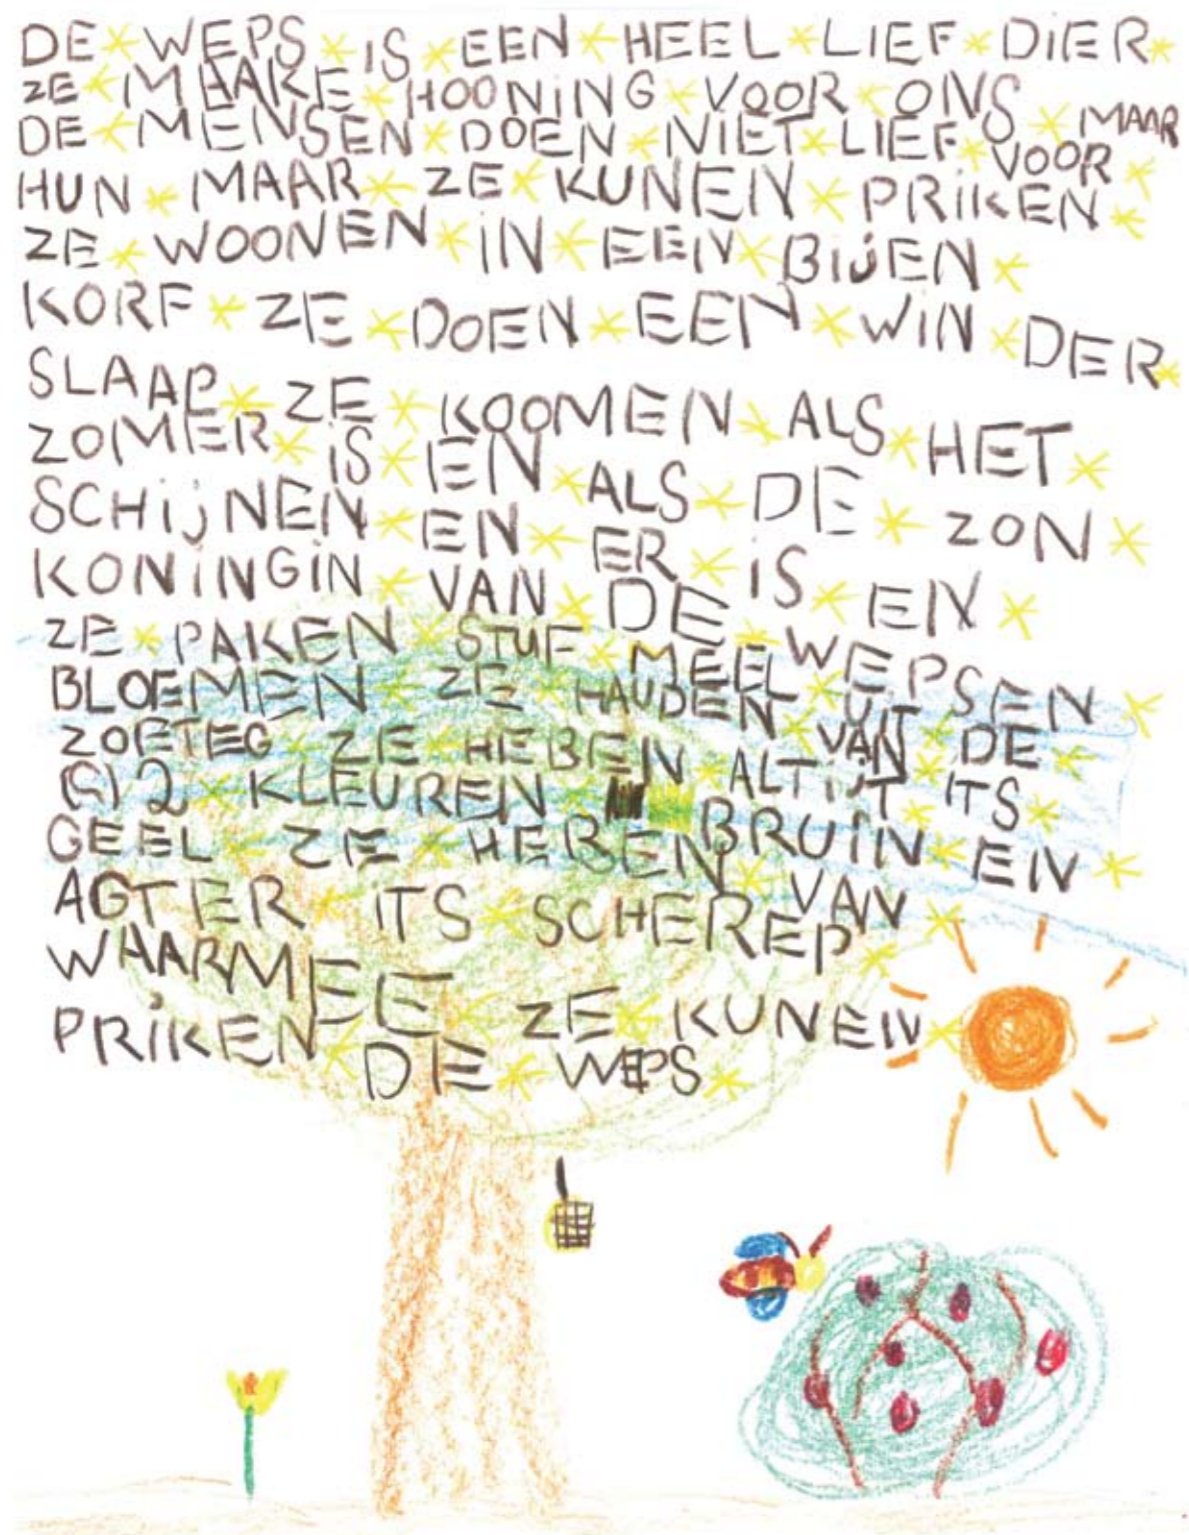 DE WEPS IS EEN HEEL LIEF DIER
ZE MAAKE HOONING VOOR ONS MAAR
DE MENSEN DOEN NIET LIEF VOOR
HUN MAAR ZE KUNEN PRIKEN
ZE WOONEN IN EEN BIJEN
KORF ZE DOEN EEN WIN DER
SLAAP ZE KOOMEN ALS HET
ZOMER IS EN ALS DE ZON
SCHIJNEN EN ER IS EN
KONINGIN VAN DE WEPSEN
ZE PAKEN STUF MEEL UIT
BLOEMEN ZE HAUDEN VAN DE
ZOETEG ZE HEBEN ALTIJT ITS
(S) 2 KLEUREN BRUIN EN
GEEL ZE HEBEN VAN
AGTER ITS SCHEREP
WAARMEE ZE KUNEN
PRIKEN DE WEPS